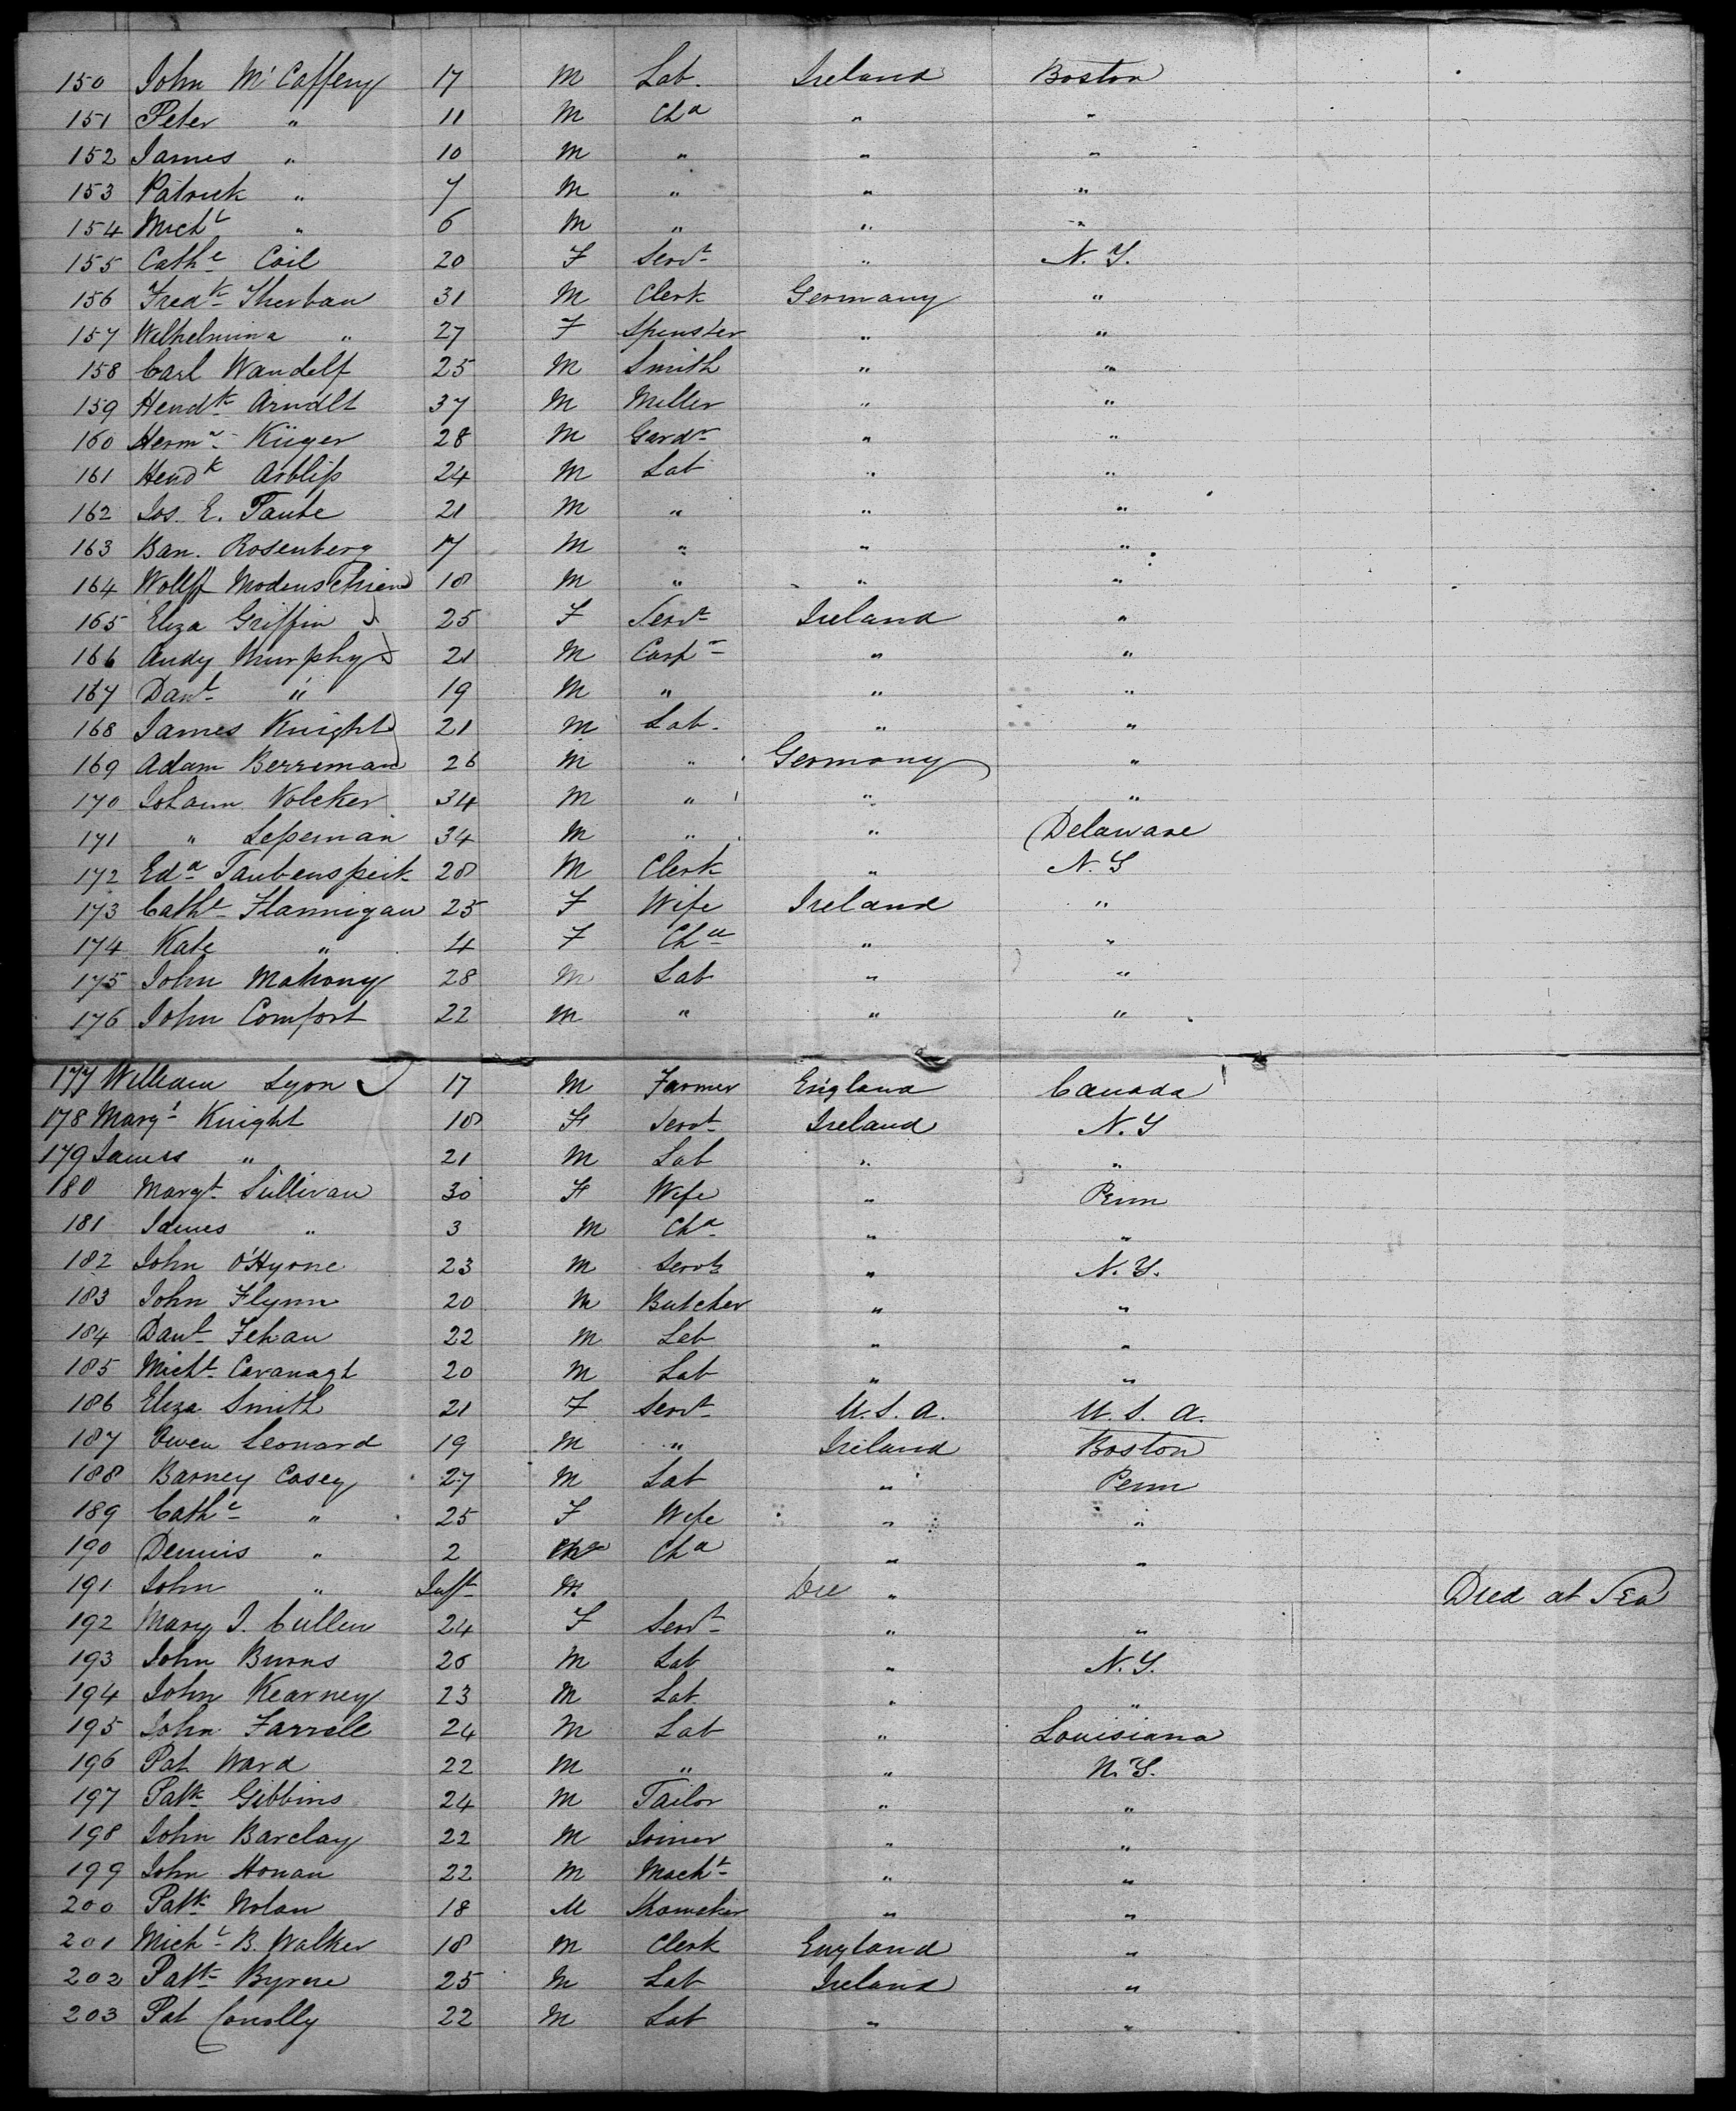 150 John McCaffery 17 M Lab. Ireland Boston
151 Peter " 11 M Cha " "
152 James " 10 M " " "
153 Patrick " 7 M " " "
154 Michl " 6 M " " "
155 Cathe Coil 20 F Servt " N.Y.
156 Fredk Therban 31 M Clerk Germany "
157 Wilhelmina " 27 F Spinster " "
158 Carl Wandelf 25 M Smith " "
159 Hendk Arndlt 37 M Miller " "
160 Hermn Küger 28 M Gardr " "
161 Hendk Arbliss 24 M Lab " "
162 Jos. E. Taube 21 M " " "
163 Ban. Rosenberg 17 M " " "
164 Wollff Modenschien 18 M " " "
165 Eliza Griffin 25 F Servt Ireland "
166 Andy Murphy 21 M Carpr " "
167 Danl " 19 M " " "
168 James Knight 21 M Lab. " "
169 Adam Berreman 26 M " Germany "
170 Johann Volcker 34 M " " "
171 " Lesseman 34 M " " Delaware
172 Eda Taubenspeik 28 M Clerk " N.Y
173 Cathe Flannigan 25 F Wife Ireland "
174 Kate " 4 F Cha " "
175 John Mahony 28 M Lab " "
176 John Comfort 22 M " " "
177 William Lyon 17 M Farmer England Canada
178 Margt Knight 18 F Servt Ireland N.Y
179 James " 21 M Lab " "
180 Margt Sullivan 30 F Wife " Penn
181 James " 3 M Cha " "
182 John O'Hyrne 23 M Servt " N.Y.
183 John Flynn 20 M Butcher " "
184 Danl Fehan 22 M Lab " "
185 Michl Cavanagh 20 M Lab " "
186 Eliza Smith 21 F Servt U.S.A. U.S.A.
187 Owen Leonard 19 M " Ireland Boston
188 Barney Casey 27 M Lab " Penn
189 Cathe " 25 F Wife " "
190 Dennis " 2 Cha " "
191 John " Inft M. Ire " Died at Sea
192 Mary J. Cullen 24 F Servt " "
193 John Burns 26 M Lab " N.Y.
194 John Kearney 23 M Lab " "
195 John Farrell 24 M Lab " Louisiana
196 Pat Ward 22 M " " N.Y.
197 Patk Gibbins 24 M Tailor " "
198 John Barclay 22 M Joiner " "
199 John Honan 22 M Macht " "
200 Patk Nolan 18 M Shomeker " "
201 Michl B. Walker 18 M Clerk England "
202 Patk Byrne 25 M Lab Ireland "
203 Pat Conolly 22 M Lab " "